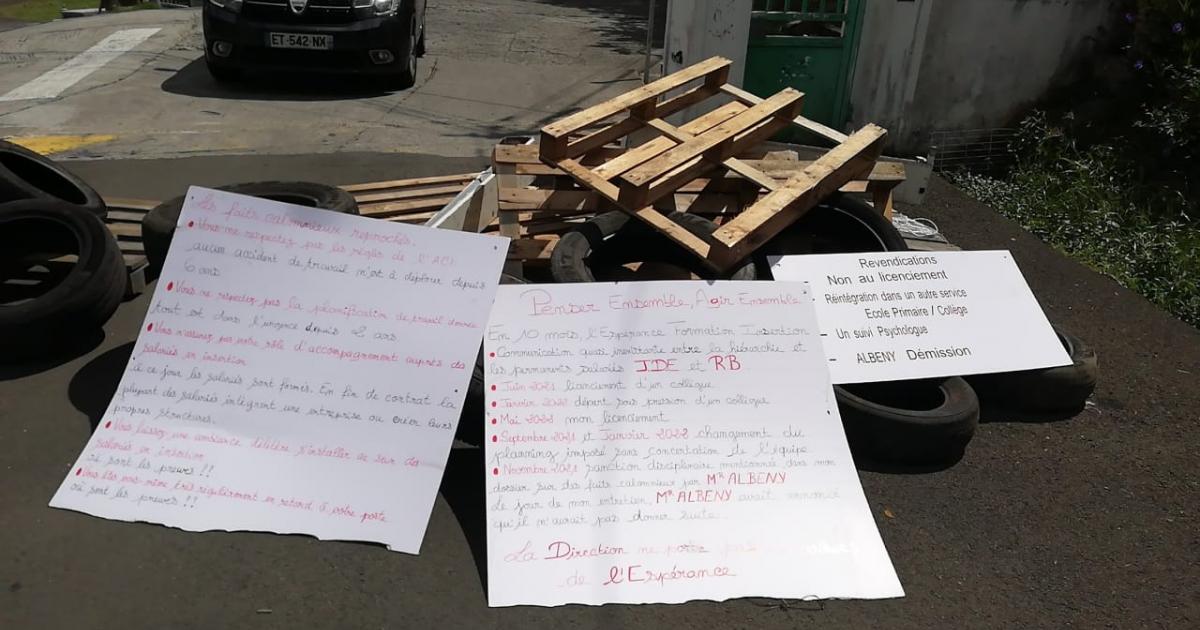 ET-542-NX
Les faits calomnieux reprochés.
• Vous ne respectez pas les règles de l'ACI
aucun accident de travail n'est à déplorer depuis
6 ans
• Vous ne respectez pas la planification de travail donnée
tout est dans l'urgence depuis 2 ans
• Vous n'assurez pas votre rôle d'accompagnement auprès des
salariés en insertion
à ce jour les salariés sont formés. En fin de contrat la
plupart des salariés intègrent une entreprise ou créer leurs
propres structures.
• Vous laissez une ambiance délétère s'installer au sein des
salariés en insertion
où sont les preuves !!
• Vous êtes vous-même très régulièrement en retard à votre poste
où sont les preuves !!
Penser Ensemble, Agir Ensemble
En 10 mois, l'Espérance Formation Insertion
• Communication quasi inexistante entre la hiérarchie et
les permanents salariés JDE et RB
• Juin 2021 licenciement d'un collègue
• Janvier 2022 départ sous pression d'un collègue
• Mai 2022 mon licenciement
• Septembre 2021 et Janvier 2022 changement du
planning imposé sans concertation de l'équipe
• Novembre 2021 sanction disciplinaire mentionnée dans mon
dossier sur des faits calomnieux par Mr ALBENY
Le jour de mon entretien, Mr ALBENY avait annoncé
qu'il n'aurait pas donner suite.
La Direction ne porte pas les valeurs
de l'Espérance
Revendications
Non au licenciement
Réintégration dans un autre service
Ecole Primaire / Collège
- Un suivi Psychologue
- ALBENY Démission